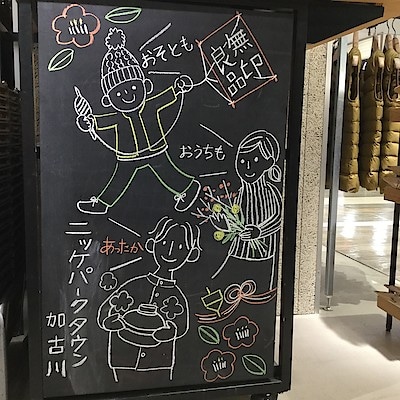 おそとも
無印
良品
おうちも
あったか
ニッケパークタウン
加古川